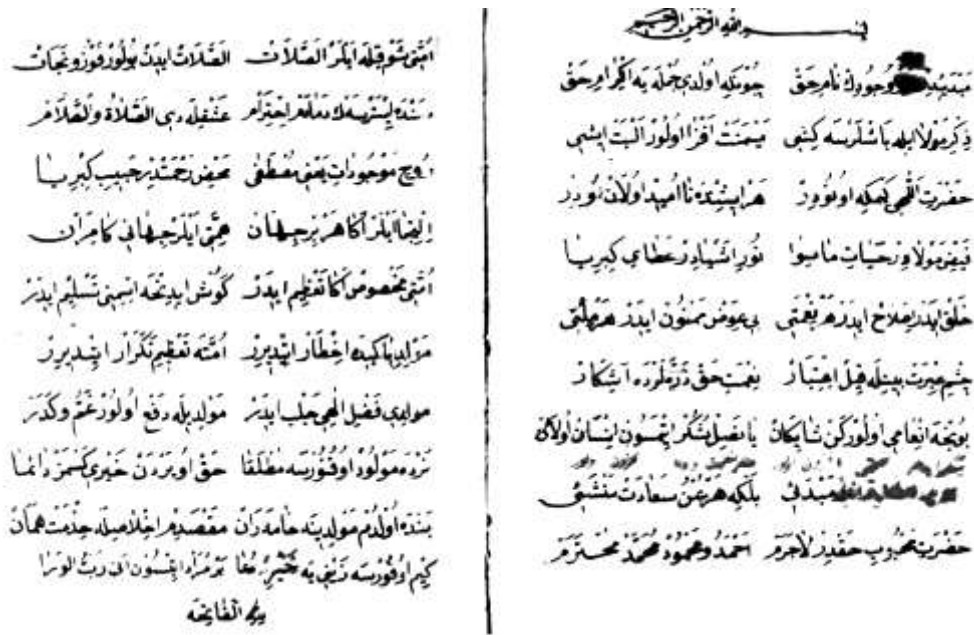 بسم الله الرحمن الرحيم
وجودك نام حق جمله اولدى جمله يه اكرام حق
ذكر مولا ايله باشلرسه كشى ميمنت افزا اولور البت ايشى
حضرت هر ايشنده نا اميد اولان بودر
فيض مولادر حيات ماسوا نور اشيادر عطاى كبريا
خلق ايدر اصلاح ايدر هر نعمتى بى عوض ممنون ايدر هر ملتى
چشم عبرت بينله قيل اعتبار نعمت حق ذره لرده آشكار
بونجه انعامى اولوركن شايكان يا نصل شكر ايتمسون انسان اولان
مبدئى بلكه هر سعادت منشئى
حضرت محبوب حقدر لاجرم احمد و محمود محمد محترم
امتى شوقله ايلر الصلات الصلات ايدن بولور فوز و نجات
سنده ايسترسه ك احترام عشقله دى الصلاة والسلام
روح موجودات يعنى مصطفى محض رحمتدر حبيب كبريا
التجا ايلر اكا هر بر جهان همتى ايلر جهانى كامران
امتى مخصوص اكا تعظيم ايدر كوش ايدنجه اسمنى تسليم ايدر
مولد پاكيده اخطار ايتديرر امته تعظيم تكرار ايتديرر
مولدى فضل الهى جلب ايدر مولد يله دفع اولور غم و كدر
نرده مولود اوقنورسه مطلقا حق او يردن خيرى كسمز دائما
بنده اولدم مولدينه خامه ران مقصدم اخلاصيله خدمت همان
كيم اوقورسه دعا بر مراد ايتسون انى رب الورا
الفاتحه